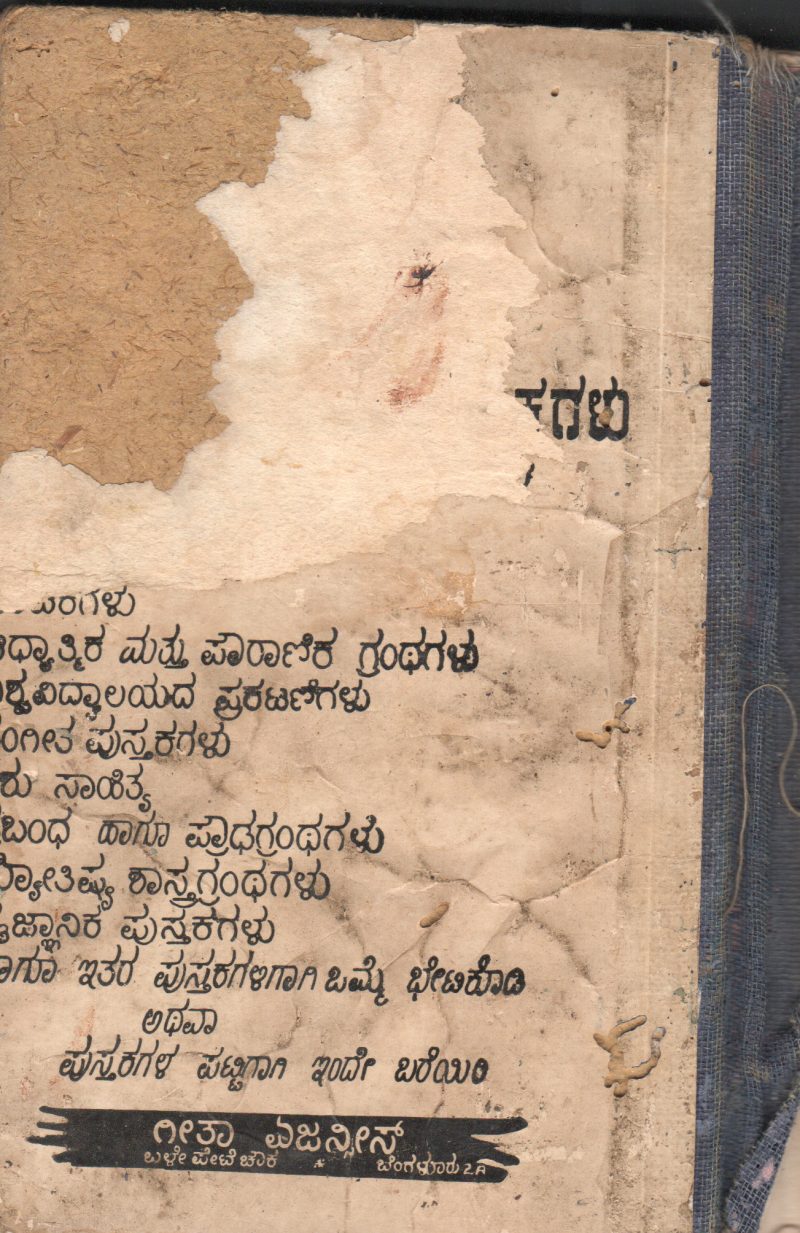 ಕಗಳು
ಗಳು
ಆಧ್ಯಾತ್ಮಿಕ ಮತ್ತು ಪೌರಾಣಿಕ ಗ್ರಂಥಗಳು
ಶ್ವವಿದ್ಯಾಲಯದ ಪ್ರಕಟಣೆಗಳು
ಂಗೀತ ಪುಸ್ತಕಗಳು
ರು ಸಾಹಿತ್ಯ
ಬಂಧ ಹಾಗೂ ಪ್ರೌಢಗ್ರಂಥಗಳು
ಜ್ಯೋತಿಷ್ಯ ಶಾಸ್ತ್ರಗ್ರಂಥಗಳು
ವೈಜ್ಞಾನಿಕ ಪುಸ್ತಕಗಳು
ಹಾಗೂ ಇತರ ಪುಸ್ತಕಗಳಿಗಾಗಿ ಒಮ್ಮೆ ಭೇಟಿಕೊಡಿ
ಅಥವಾ
ಪುಸ್ತಕಗಳ ಪಟ್ಟಿಗಾಗಿ ಇಂದೇ ಬರೆಯಿರಿ
ಗೀತಾ ಏಜನ್ಸೀಸ್
ಬಳ್ಳೇಪೇಟೆ ಚೌಕ * ಬೆಂಗಳೂರು 2.A